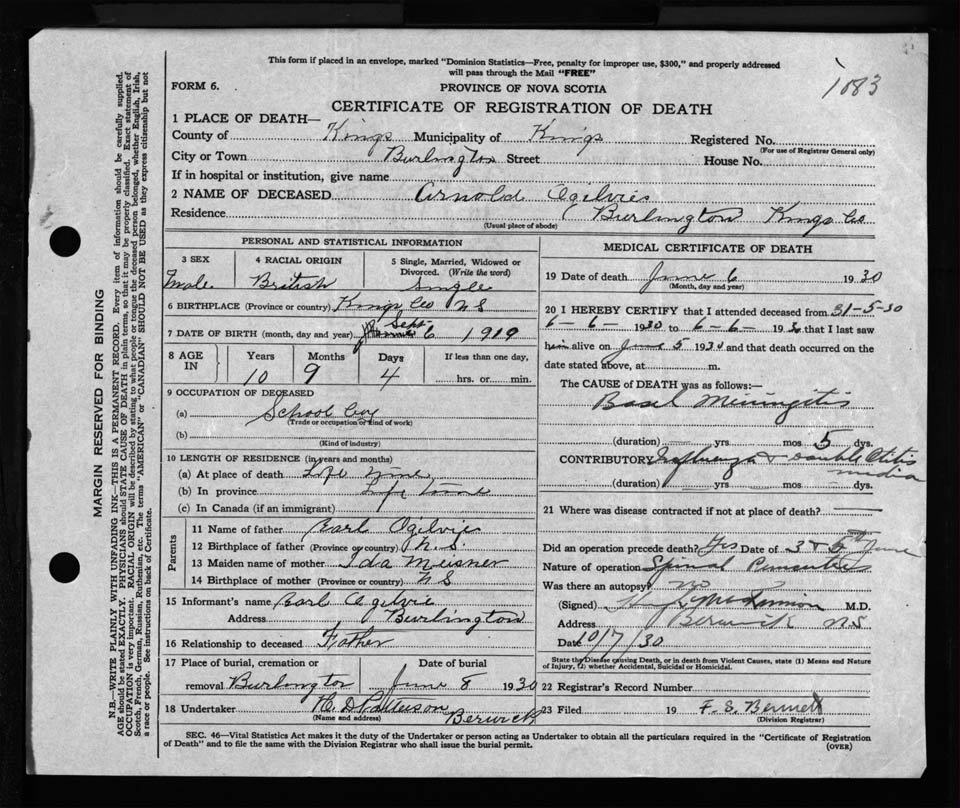 This form if placed in an envelope, marked "Dominion Statistics—Free, penalty for improper use, $300," and properly addressed
will pass through the Mail "FREE"
1083
FORM 6.
PROVINCE OF NOVA SCOTIA
CERTIFICATE OF REGISTRATION OF DEATH
1 PLACE OF DEATH—
County of Kings Municipality of Kings Registered No.
(For use of Registrar General only)
City or Town Burlington Street House No.
If in hospital or institution, give name
2 NAME OF DECEASED Arnold Ogilvie
Residence Burlington Kings Co
(Usual place of abode)
PERSONAL AND STATISTICAL INFORMATION
3 SEX 4 RACIAL ORIGIN 5 Single, Married, Widowed or Divorced. (Write the word)
Male British Single
6 BIRTHPLACE (Province or country) Kings Co NS
7 DATE OF BIRTH (month, day and year) Sept 6 1919
8 AGE IN Years Months Days If less than one day,
10 9 4 hrs. or min.
9 OCCUPATION OF DECEASED
(a) School boy
(Trade or occupation or kind of work)
(b)
(Kind of industry)
10 LENGTH OF RESIDENCE (in years and months)
(a) At place of death Life Time
(b) In province Life Time
(c) In Canada (if an immigrant)
Parents
11 Name of father Earl Ogilvie
12 Birthplace of father (Province or country) N.S.
13 Maiden name of mother Ida Meisner
14 Birthplace of mother (Province or country) NS
15 Informant's name Earl Ogilvie
Address Burlington
16 Relationship to deceased Father
17 Place of burial, cremation or removal Burlington Date of burial June 8 1930
18 Undertaker Berwick
(Name and address)
MEDICAL CERTIFICATE OF DEATH
19 Date of death June 6 1930
(Month, day and year)
20 I HEREBY CERTIFY that I attended deceased from 31-5-30
6-6- 1930 to 6-6- 1930 that I last saw
him alive on June 5 1930 and that death occurred on the
date stated above, at m.
The CAUSE of DEATH was as follows:
Basel Meningitis
(duration) yrs mos 5 dys.
CONTRIBUTORY Influenza + Double Otitis
media
(duration) yrs mos dys.
21 Where was disease contracted if not at place of death?
Did an operation precede death? Yes Date of 3 + 5 June
Nature of operation Spinal
Was there an autopsy? no
(Signed) M.D.
Address Berwick NS
Date 10/7/30
State the Disease causing Death, or in death from Violent Causes, state (1) Means and Nature
of Injury, (2) whether Accidental, Suicidal or Homicidal.
22 Registrar's Record Number
23 Filed 19 F. S. Bennett
(Division Registrar)
SEC. 46—Vital Statistics Act makes it the duty of the Undertaker or person acting as Undertaker to obtain all the particulars required in the "Certificate of Registration
of Death" and to file the same with the Division Registrar who shall issue the burial permit.
(OVER)
MARGIN RESERVED FOR BINDING
N.B.—WRITE PLAINLY WITH UNFADING INK—THIS IS A PERMANENT RECORD. Every item of information should be carefully supplied.
AGE should be stated EXACTLY. PHYSICIANS should STATE CAUSE OF DEATH in plain terms, so that it may be properly classified. Exact statement of
OCCUPATION is very important. RACIAL ORIGIN will be described by stating to what people or tongue the deceased person belonged, whether English, Irish,
Scotch, French, German, Russian, Ruthenian, etc. The terms "AMERICAN" or "CANADIAN" SHOULD NOT BE USED as they express citizenship but not
a race or people. See instructions on back of Certificate.